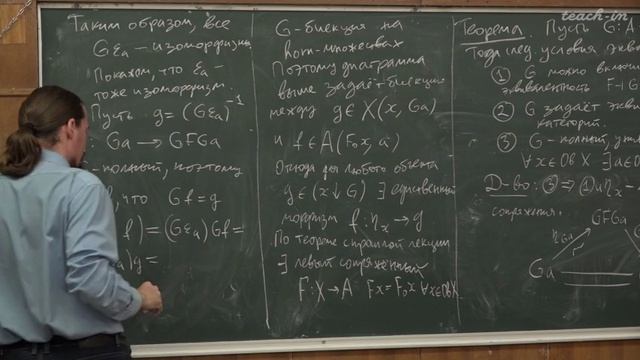 teach-in
Таким образом, все
Gε_a – изоморфизмы
Покажем, что ε_a –
тоже изоморфизм.
Пусть g = (Gε_a)^{-1}
Ga → GFGa
полный, поэтому
что Gf = g
f) = (Gε_a) Gf =
)g =
G – биекция на
hom-множествах
Поэтому диаграмма
выше задаёт биекцию
между g ∈ X(x, Ga)
и f ∈ A(F_0x, a)
Отсюда для любого объекта
g ∈ (x ↓ G) ∃ единственный
морфизм f: η_x → g
По теореме с прошлой лекции
∃ левый сопряжённый
F: X → A Fx = F_0x ∀x∈Ob X
Теорема. Пусть G: A
Тогда след. условия
① G можно
эквивалентность F ⊣ G
② G задаёт
категорий.
③ G – полный,
∀x ∈ Ob X ∃ a ∈
Д-во: ③ ⇒ ① η_x –
сопряжения.
GFGa
η_{Ga}
Ga